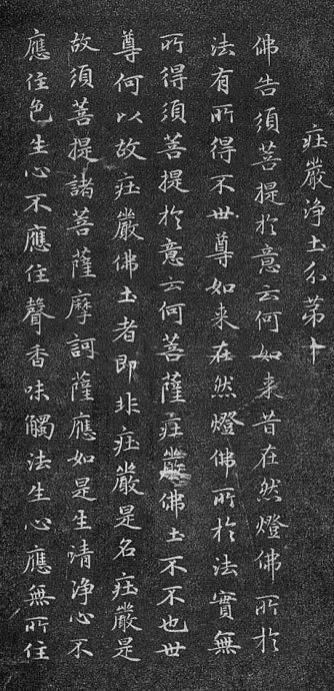 莊嚴淨土分第十
佛告須菩提於意云何如来昔在然燈佛所於
法有所得不世尊如来在然燈佛所於法實無
所得須菩提於意云何菩薩莊嚴佛土不不也世
尊何以故莊嚴佛土者即非莊嚴是名莊嚴是
故須菩提諸菩薩摩訶薩應如是生清淨心不
應住色生心不應住聲香味觸法生心應無所住